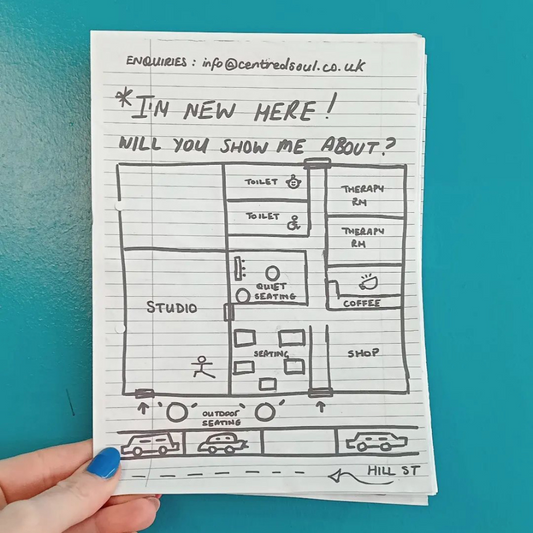 ENQUIRIES : info@centredsoul.co.uk
*I'M NEW HERE!
WILL YOU SHOW ME ABOUT?
TOILET
THERAPY
RM
TOILET
THERAPY
RM
QUIET
SEATING
COFFEE
STUDIO
SEATING
SHOP
OUTDOOR
SEATING
HILL ST